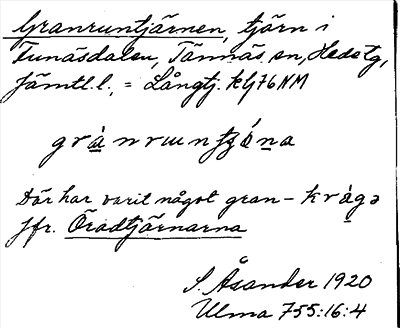 Granruntjärnen, tjärn i
Funäsdalen, Tännäs sn, Hede tg,
Jämtl. l., = Långtj. kbl 76 NM
grànrɯntʒǿna
Där har varit något gran-kràgə
Jfr. Öradtjärnarna
S. Åsander 1920
Ulma 755:16:4